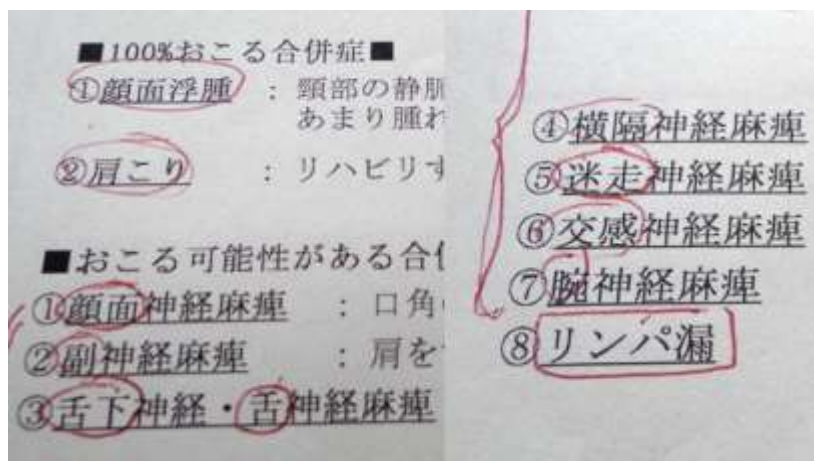 ■100%おこる合併症■
①顔面浮腫 : 頸部の静脈
あまり腫れ
②肩こり : リハビリす
■おこる可能性がある合併
①顔面神経麻痺 : 口角
②副神経麻痺 : 肩を
③舌下神経・舌神経麻痺
④横隔神経麻痺
⑤迷走神経麻痺
⑥交感神経麻痺
⑦腕神経麻痺
⑧リンパ漏